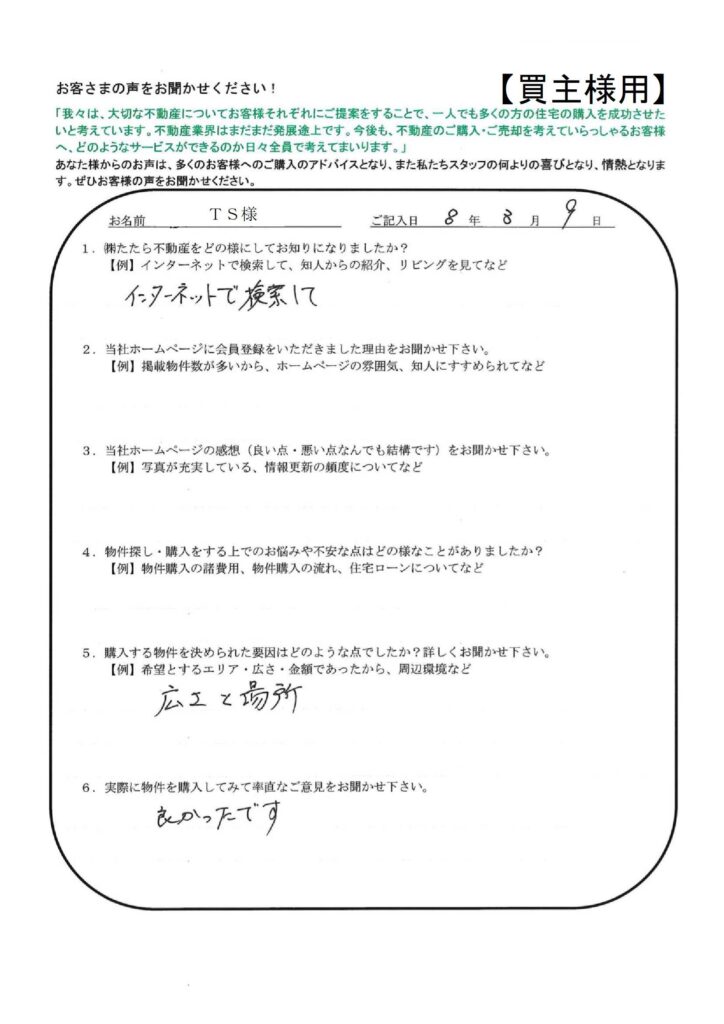 お客さまの声をお聞かせください！
【買主様用】
「我々は、大切な不動産についてお客様それぞれにご提案をすることで、一人でも多くの方の住宅の購入を成功させた
いと考えています。不動産業界はまだまだ発展途上です。今後も、不動産のご購入・ご売却を考えていらっしゃるお客様
へ、どのようなサービスができるのか日々全員で考えてまいります。」
あなた様からのお声は、多くのお客様へのご購入のアドバイスとなり、また私たちスタッフの何よりの喜びとなり、情熱となりま
す。ぜひお客様の声をお聞かせください。
お名前 TS様 ご記入日 8 年 3 月 9 日
1．㈱たたら不動産をどの様にしてお知りになりましたか？
【例】インターネットで検索して、知人からの紹介、リビングを見てなど
インターネットで検索して
2．当社ホームページに会員登録をいただきました理由をお聞かせ下さい。
【例】掲載物件数が多いから、ホームページの雰囲気、知人にすすめられてなど
3．当社ホームページの感想（良い点・悪い点なんでも結構です）をお聞かせ下さい。
【例】写真が充実している、情報更新の頻度についてなど
4．物件探し・購入をする上でのお悩みや不安な点はどの様なことがありましたか？
【例】物件購入の諸費用、物件購入の流れ、住宅ローンについてなど
5．購入する物件を決められた要因はどのような点でしたか？詳しくお聞かせ下さい。
【例】希望とするエリア・広さ・金額であったから、周辺環境など
広さと場所
6．実際に物件を購入してみて率直なご意見をお聞かせ下さい。
良かったです